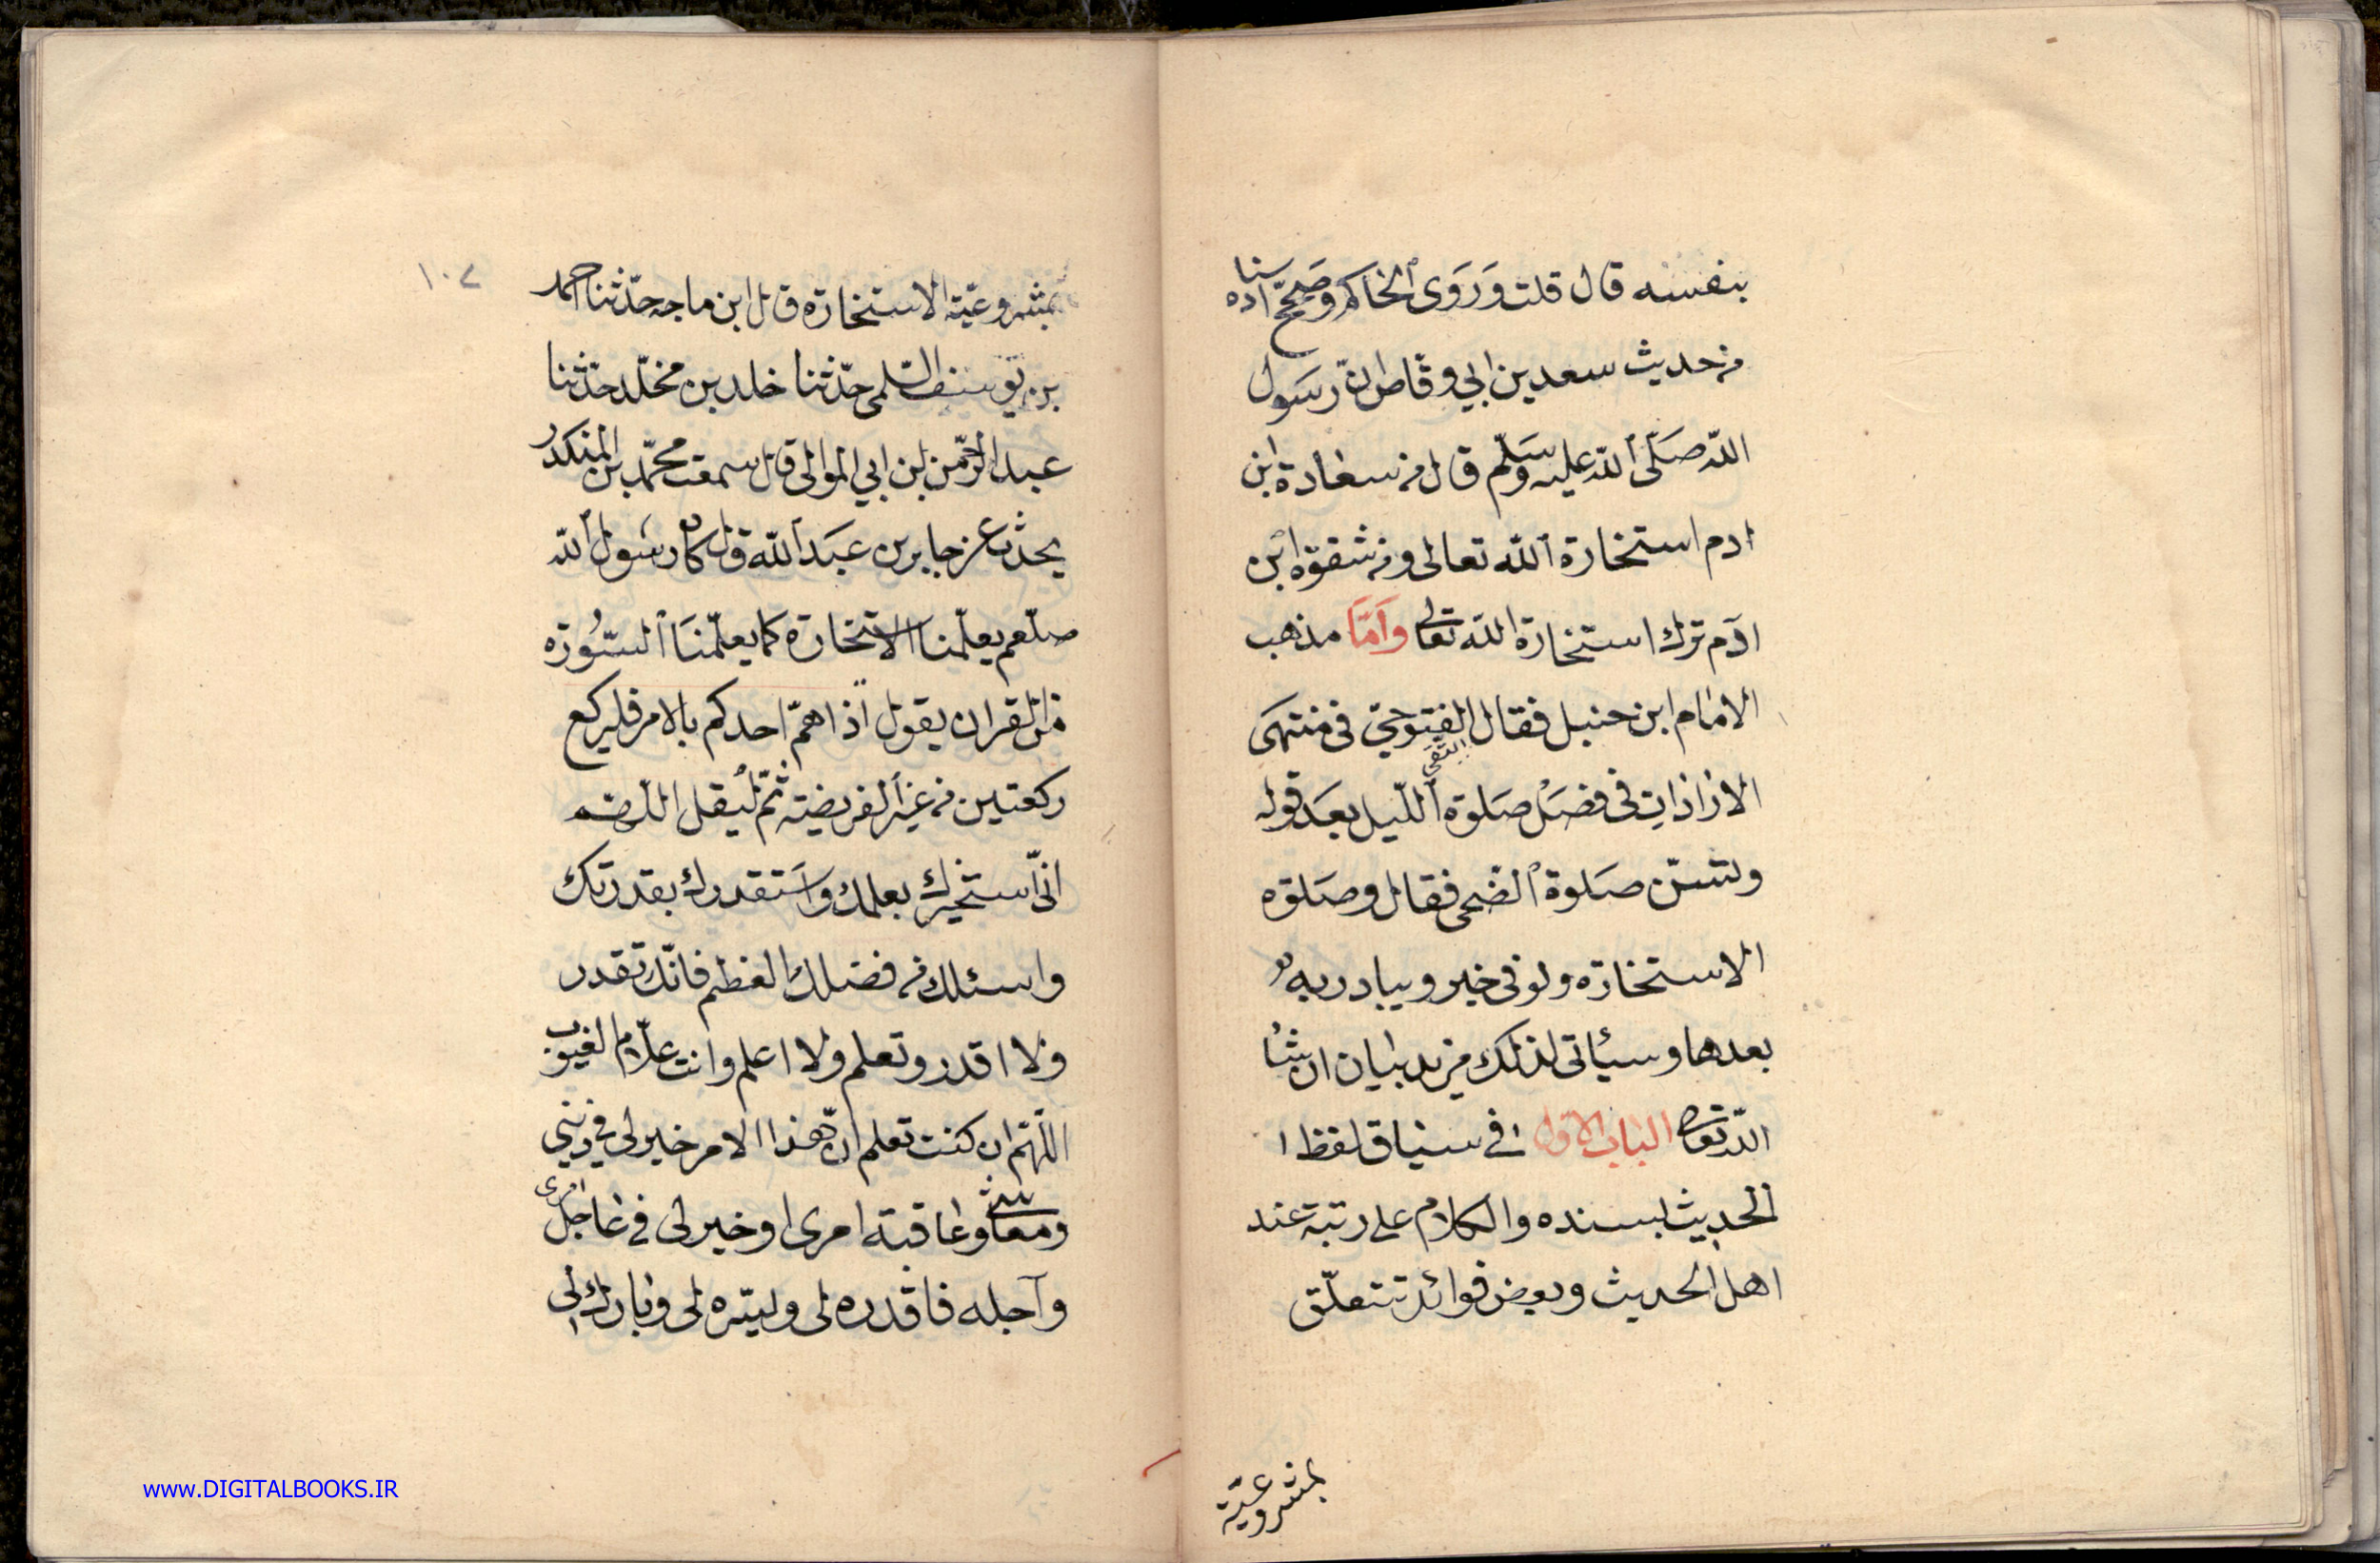 بنفسه قال قلت وَرَوَى ٱلحاكم وصَحّح اسناده
من حديث سعد بن ابي وقاص انّ رسَول
اللّه صَلّى ٱللّه عليه وَسَلّم قال من سعادة ابن
ادم استخارة ٱللّه تعالى ومن شقوة ابن
ادَم ترك استخارة اللّه تعالى وَاَمّا مذهب
الامام ابن حنبل فقال التقى الفتوحيّ فى منتهَى
الارادات فى فصَل صَلوة ٱللّيل بعَد قوله
وتسنّ صَلوة ٱلضّحى فقال وصَلوة
الاستخارة ولو فى خير ويبادر به
بعدها وسيأتى لذلك مزيد بيان ان شا
اللّه تعالى الباب الاول فى سياق لفظ ا
لحديث بسنده والكلام على رتبة عند
اهل الحديث وبعض فوائد تتعلّق
بمشروعيّة
١٠٧
بمشروعيّة الاستخارة قال ابن ماجه حدّثنا احمد
بن يوسف السّلمى حدّثنا خالد بن مخلّد حدّثنا
عبد الرّحمن بن ابي الموالى قال سمعت محمّد بن المنكدر
يحدّث عن جابر بن عبَد ٱللّه قال كان رسُول ٱللّه
صلّعم يعلّمنا الاستخارة كما يعلّمنَا ٱلسّورة
من القران يقول اذا همّ احدكم بالامر فليركع
ركعتين من غير ٱلفريضة ثمّ ليقل اللّهمّ
انّى استخيرك بعلمك واَستقدرك بقدرتك
واسئلك من فضلك العظيم فانّك تقدر
ولا اقدر وتعلم ولا اعلم وانت علّام الغيوب
اللّهمّ ان كنت تعلم انّ هذا الامر خير لى فى دينى
ومعاشى وعاقبة امرى او خير لى فى عاجل امرى
وآجله فاقدره لى ويسّره لى وبارك لى
www.DIGITALBOOKS.IR